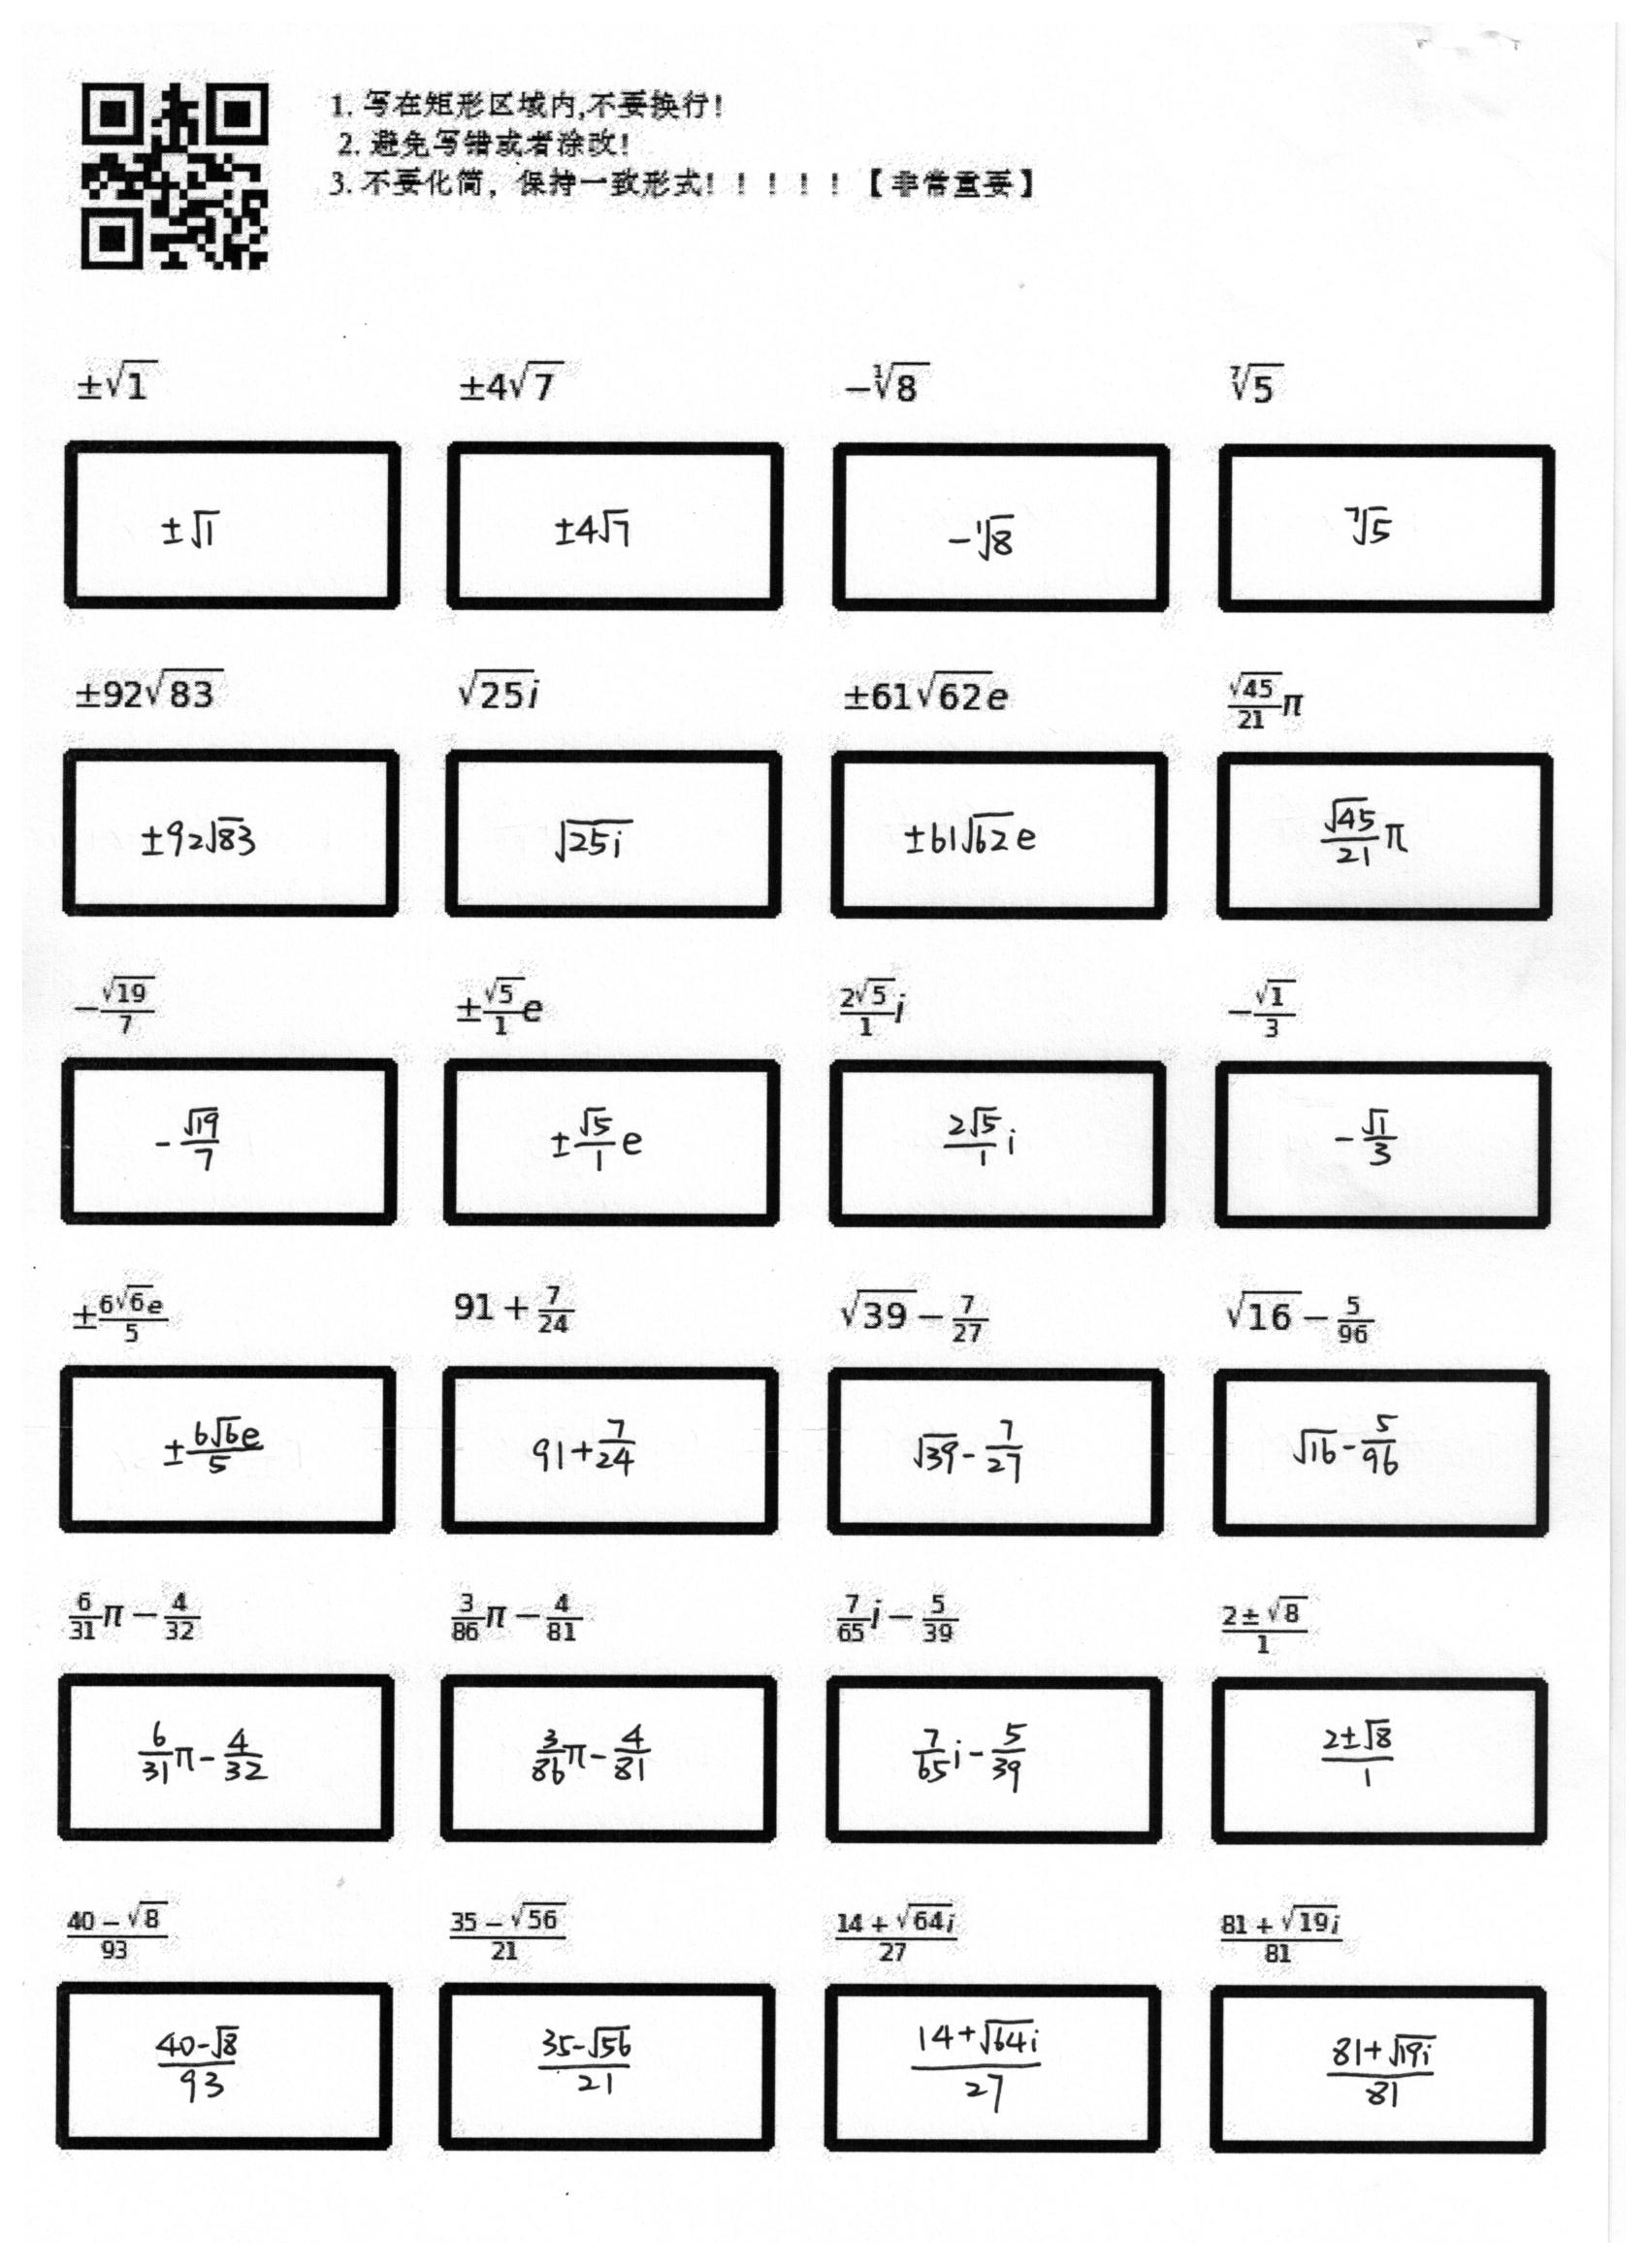 1. 写在矩形区域内,不要换行!
2. 避免写错或者涂改!
3. 不要化简，保持一致形式！！！！！【非常重要】
±√1 ±4√7 -∜[1]{8} ∜[7]{5}
±√1 ±4√7 -∜[1]{8} ∜[7]{5}
±92√83 √(25i) ±61√62e (√45)/21 π
±92√83 √(25i) ±61√62 e (√45)/21 π
-(√19)/7 ±(√5)/1 e (2√5)/1 i -(√1)/3
-(√19)/7 ±(√5)/1 e (2√5)/1 i -(√1)/3
±(6√6e)/5 91+7/24 √39-7/27 √16-5/96
±(6√6e)/5 91+7/24 √39-7/27 √16-5/96
6/31 π-4/32 3/86 π-4/81 7/65 i-5/39 (2±√8)/1
6/31 π-4/32 3/86 π-4/81 7/65 i-5/39 (2±√8)/1
(40-√8)/93 (35-√56)/21 (14+√(64i))/27 (81+√(19i))/81
(40-√8)/93 (35-√56)/21 (14+√(64i))/27 (81+√(19i))/81